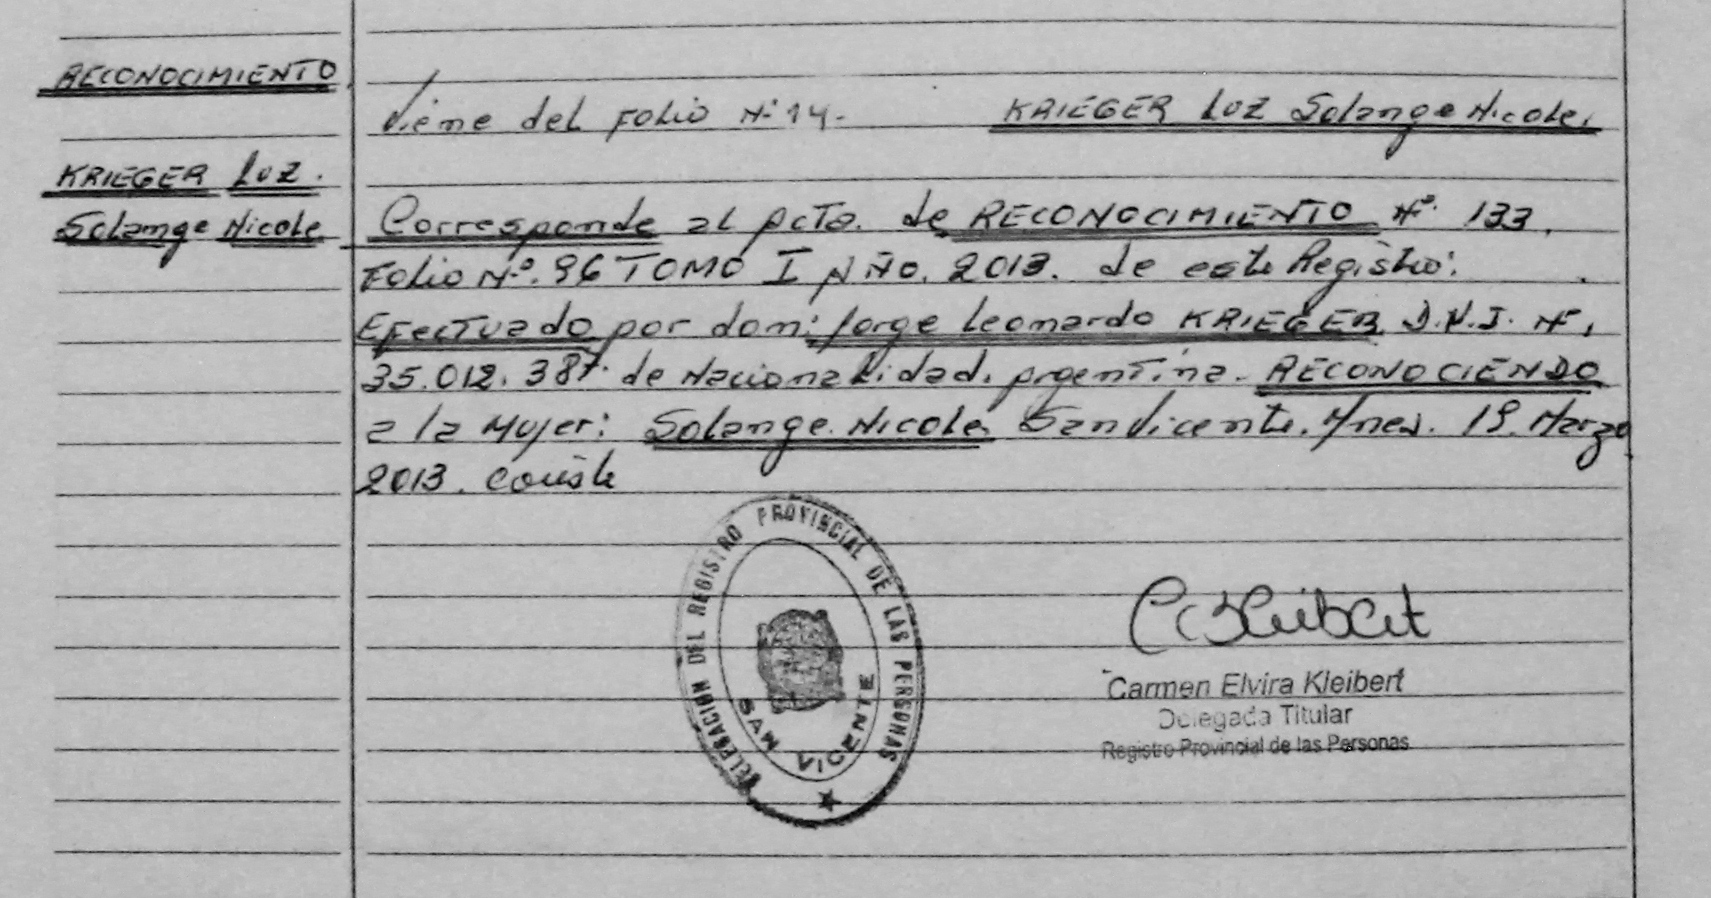 RECONOCIMIENTO
KRIEGER Luz.
Solange Nicole
Viene del Folio Nº 14.-
KRIEGER Luz Solange Nicole.
Corresponde al Acta. de RECONOCIMIENTO Nº. 133.
Folio Nº. 96 TOMO I AÑO. 2013. de este Registro:
Efectuado por don: Jorge Leonardo KRIEGER D.N.I. Nº.
35.012.387. de Nacionalidad. Argentina. RECONOCIENDO
a la Mujer: Solange Nicole. San Vicente. Mnes. 19. Marzo
2013. Conste
DELEGACION DEL REGISTRO PROVINCIAL DE LAS PERSONAS
SAN VICENTE
CKleibert
Carmen Elvira Kleibert
Delegada Titular
Registro Provincial de las Personas